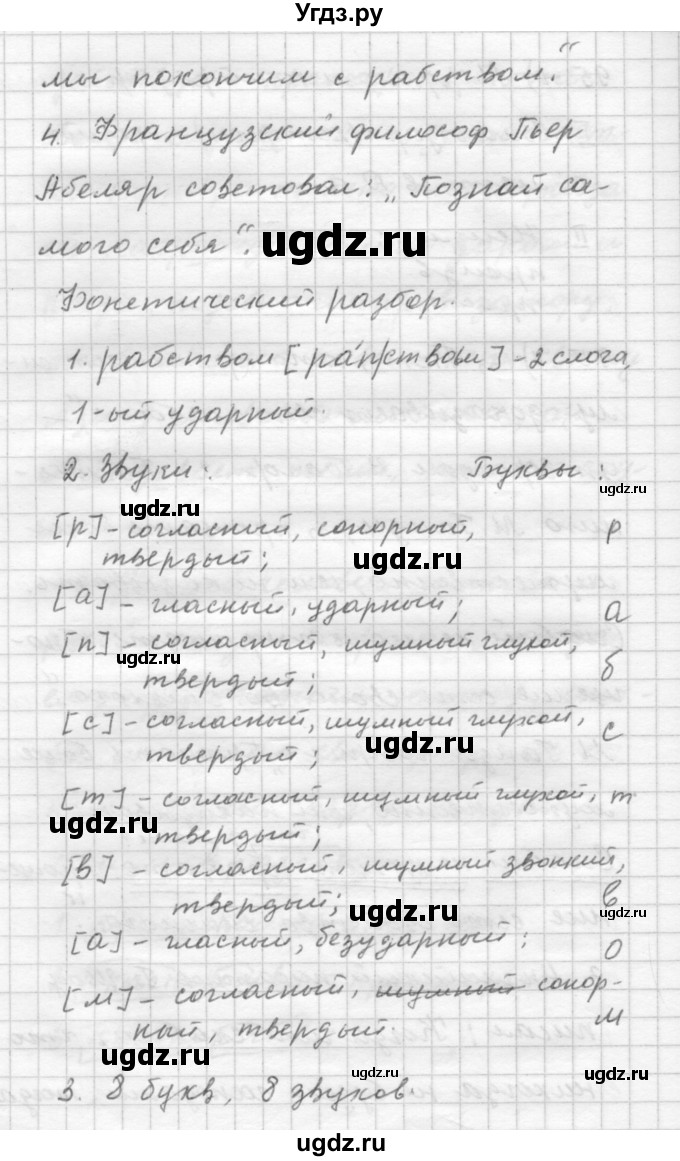 Угдз.ру
мы покончим с рабством."
4. Французский философ Пьер
Абеляр советовал: „Познай са-
мого себя".
ugdz.ru
Фонетический разбор.
1. рабством [ра́п|ствам] - 2 слога,
1-ый ударный.
2. Звуки: Буквы:
ugdz.ru
ugdz.ru
[р] - согласный, сонорный, р
твердый;
ugdz.ru
[а] - гласный, ударный; а
[п] - согласный, шумный глухой, б
ugdz.ru
твердый;
[с] - согласный, шумный глухой, с
твердый;
ugdz.ru
[т] - согласный, шумный глухой, т
ugdz.ru
твердый;
[в] - согласный, шумный звонкий,
твердый; в
ugdz.ru
ugdz.ru
[а] - гласный, безударный; о
[м] - согласный, шумный сонор-
ный, твердый м
ugdz.ru
ugdz.ru
3. 8 букв, 8 звуков.
ugdz.ru